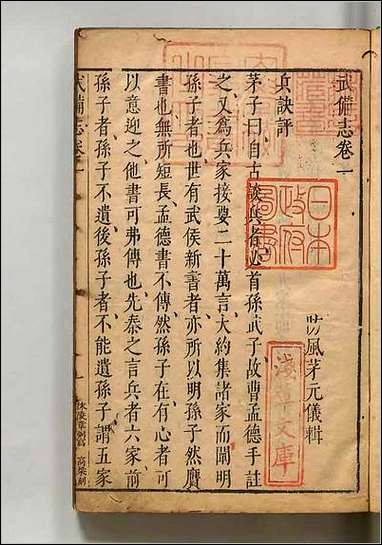 武備志卷一
防風茅元儀輯
兵訣評
茅子曰自古談兵者必首孫武子故曹孟德手註
之又爲兵家接要二十萬言大約集諸家而闡明
孫子者也世有武侯新書者亦所以明孫子然贋
書也無所短長孟德書不傳然孫子在有心者可
以意迎之他書可弗傳也先秦之言兵者六家前
孫子者孫子不遺後孫子者不能遺孫子謂五家
武備志卷一
日本政府圖書
淺草文庫